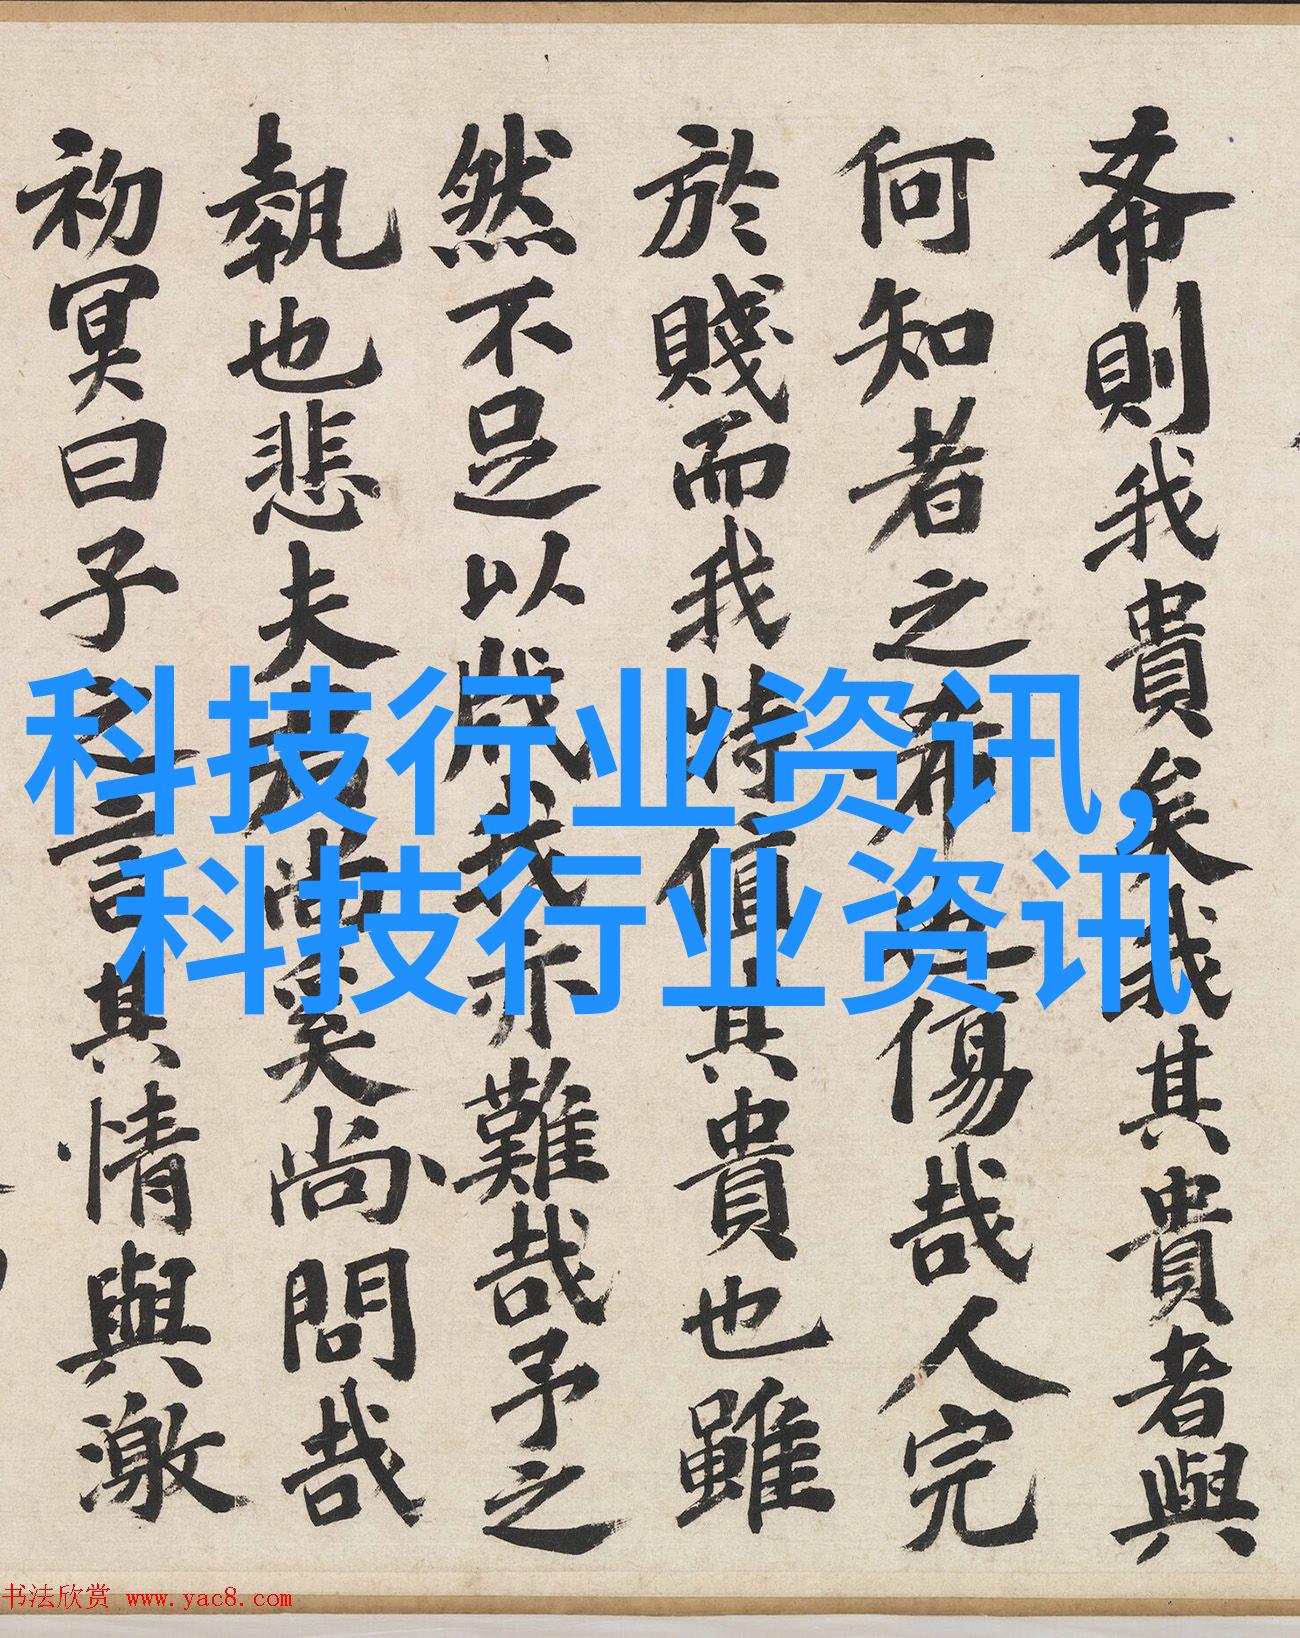 希則我貴矣我其貴者與
何知者之希傷哉人完
於賤而我特值其貴也雖
然不足以戚我亦難哉予之
執也悲夫尚奚尚問哉
初冥曰子之言其情與激
科技行业资讯,
科技行业资讯
书法欣赏 www.yac8.com